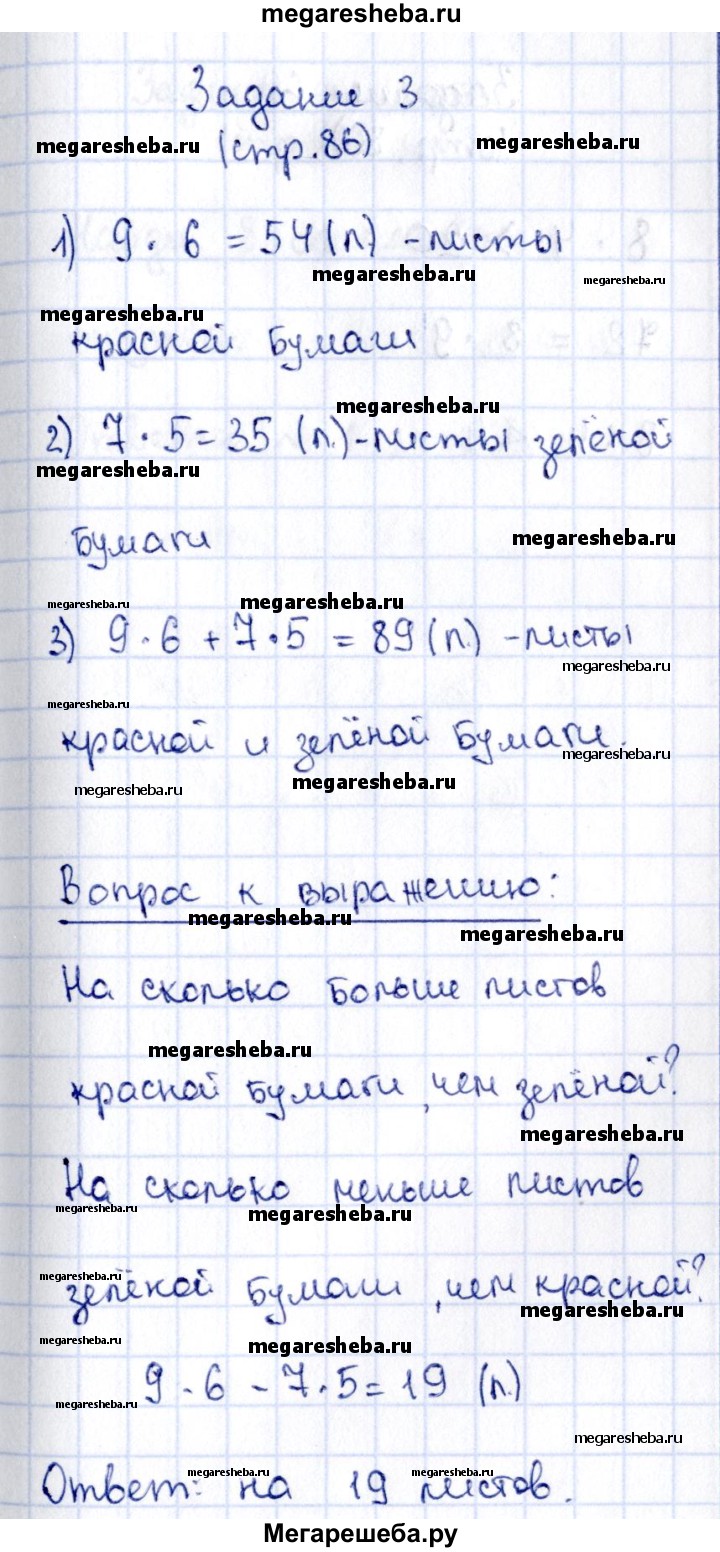 megaresheba.ru
Задание 3
megaresheba.ru (стр.86) megaresheba.ru
1) 9 · 6 = 54 (л) - листы
megaresheba.ru megaresheba.ru
megaresheba.ru
красной бумаги
megaresheba.ru
2) 7 · 5 = 35 (л.) - листы зелёной
megaresheba.ru
бумаги megaresheba.ru
megaresheba.ru megaresheba.ru
3) 9 · 6 + 7 · 5 = 89 (л.) - листы
megaresheba.ru
megaresheba.ru
красной и зелёной бумаги.
megaresheba.ru
megaresheba.ru megaresheba.ru
Вопрос к выражению:
megaresheba.ru
megaresheba.ru
На сколько больше листов
megaresheba.ru
красной бумаги, чем зелёной?
megaresheba.ru
На сколько меньше листов
megaresheba.ru megaresheba.ru
megaresheba.ru
зелёной бумаги, чем красной?
megaresheba.ru
megaresheba.ru megaresheba.ru
9 · 6 - 7 · 5 = 19 (л.)
megaresheba.ru
megaresheba.ru
megaresheba.ru megaresheba.ru
Ответ: на 19 листов.
Мегарешеба.ру